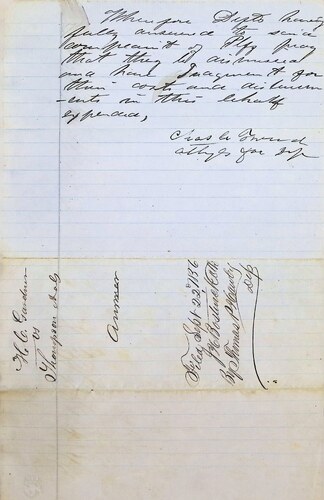 Wherefore Defts having
fully answered the said
complaint of Plff pray
that they be dismissed
and have Judgment for
their costs and disburse
-ments in this behalf
expended,
attys for Deft
H. C. Gardner
vs
Thompson
Answer
Filed Sept 22
By Thomas
Dep